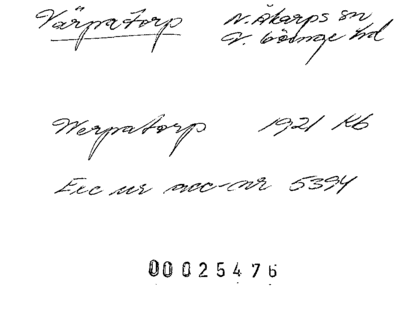 Värpatorp N. Åkarps sn
V. Göinge hd
Werpatorp 1921 Kb
Exc ur acc-nr 5394
00025476